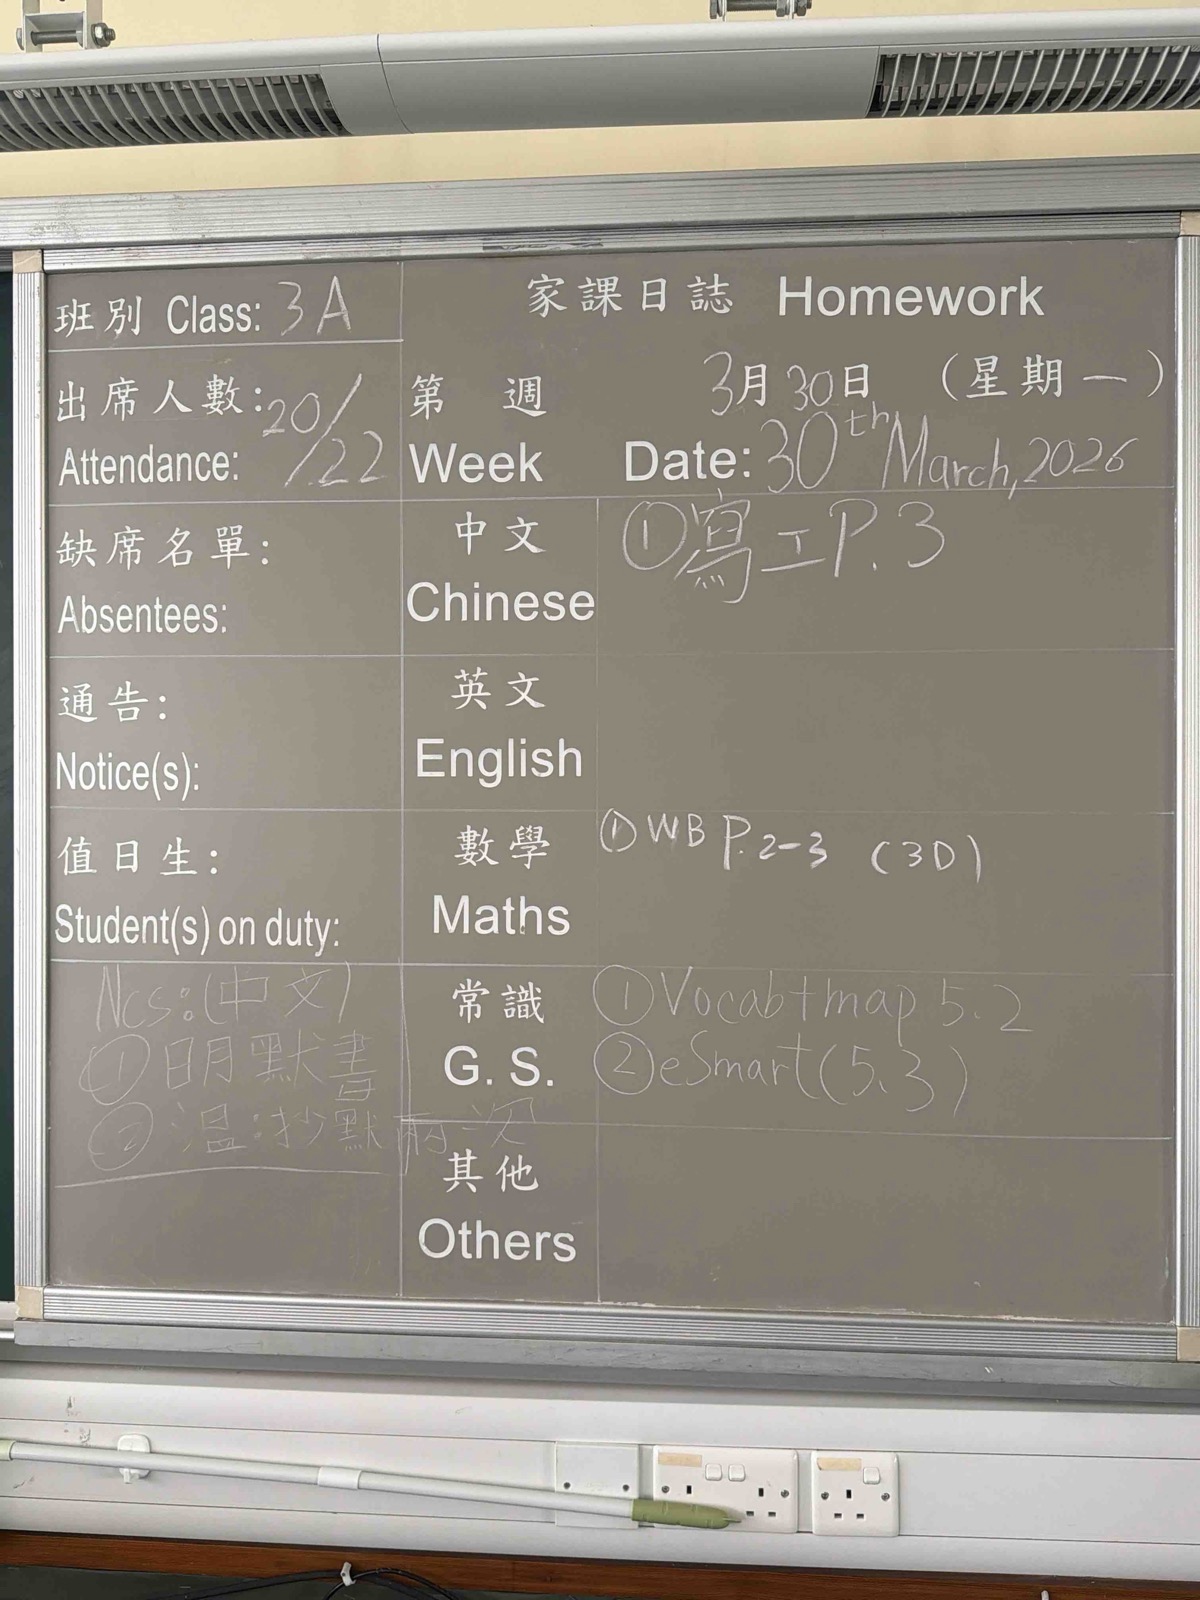 班別 Class: 3A
家課日誌 Homework
出席人數: 20/22
Attendance:
第 週 3月30日 (星期一)
Week Date: 30th March, 2026
缺席名單:
Absentees:
中文 ①寫工P.3
Chinese
通告:
Notice(s):
英文
English
值日生:
Student(s) on duty:
數學 ①WB P.2-3 (3D)
Maths
Ncs:(中文)
①明默書
②溫:抄默兩次
常識 ①Vocab+map 5.2
G. S. ②eSmart(5.3)
其他
Others